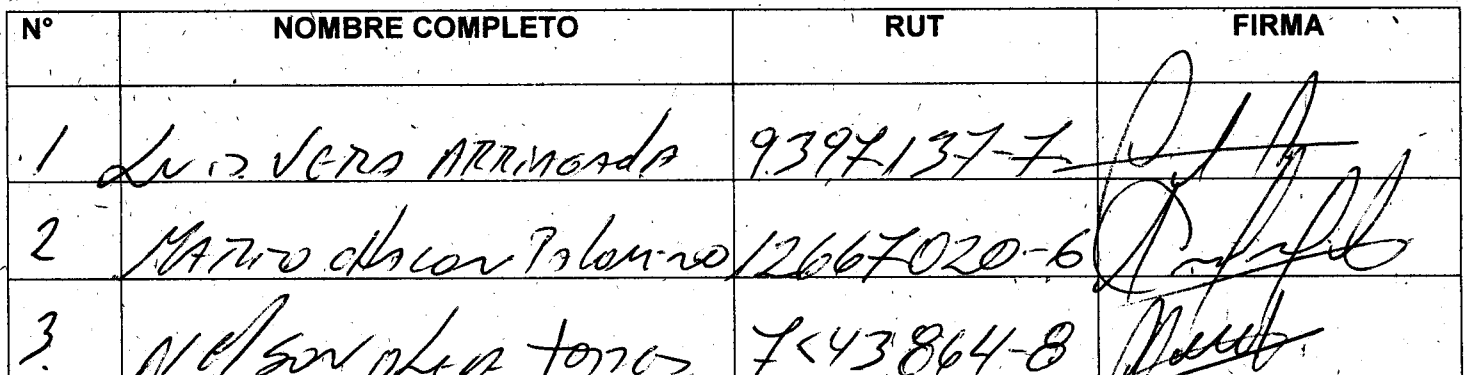 N° NOMBRE COMPLETO RUT FIRMA
1 Luis Vera Arriagada 9397137-7
2 Mario Chacon Palomino 12667020-6
3. Nelson Torres